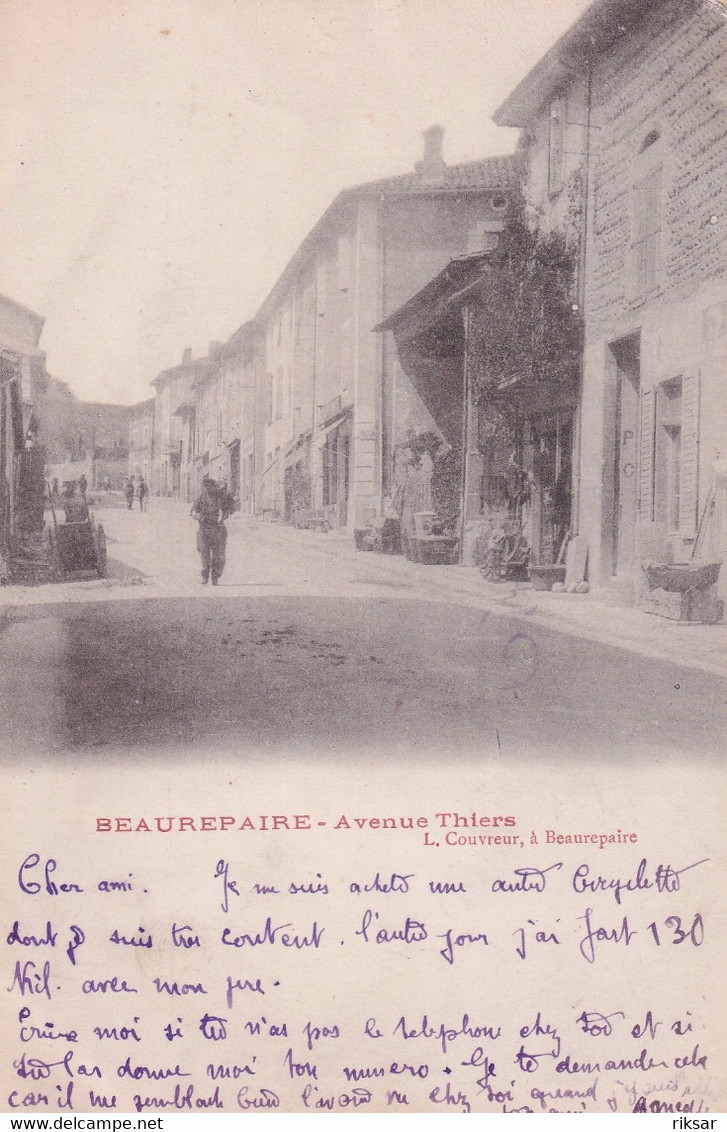 BEAUREPAIRE - Avenue Thiers
L. Couvreur, à Beaurepaire
Cher ami. Je me suis acheté une autre Bicyclette
dont je suis tres content. l'autre jour j'ai fait 130
Kil. avec mon pere.
Ecrive moi si tu n'as pas le telephone chez toi et si
tu las donne moi ton numero. Je te demander cela
car il me semblait bien l'avoir vu chez toi quand
delcampe.net
riksar